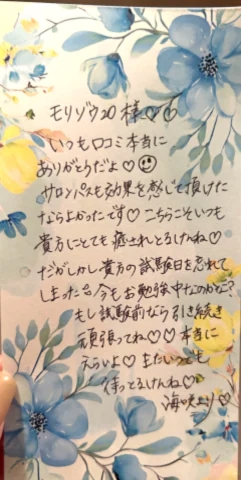 モリゾウ20 様♡♡
いつも口コミ本当に
ありがとうだよ♡☺
サロンパスも効果を感じて頂けた
ならよかったです♡こちらこそいつも
貴方にとても癒されとるけんね♡
だがしかし貴方の試験日を忘れて
しまった 今もお勉強中なのかな?
もし試験前なら引き続き
頑張ってね♡♡本当に
えらいよ♡またいつでも
待ってるけんね♡
海の より♡